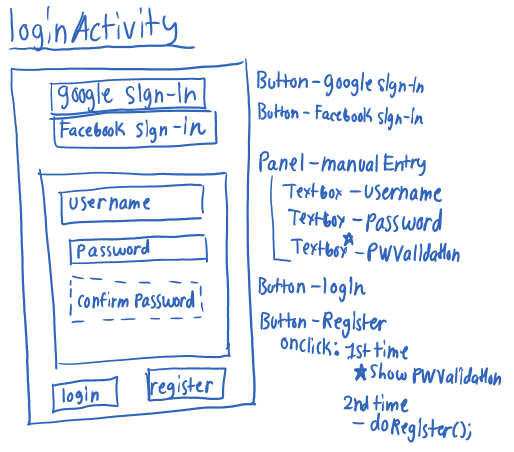 loginActivity
google sign-in
Facebook sign-in
username
password
confirm password
login
register
Button-google sign-in
Button-Facebook sign-in
Panel-manual Entry
Textbox-username
Textbox-password
Textbox★-PWValidation
Button-login
Button-Register
onclick: 1st time
★show PWValidation
2nd time
-doRegister();